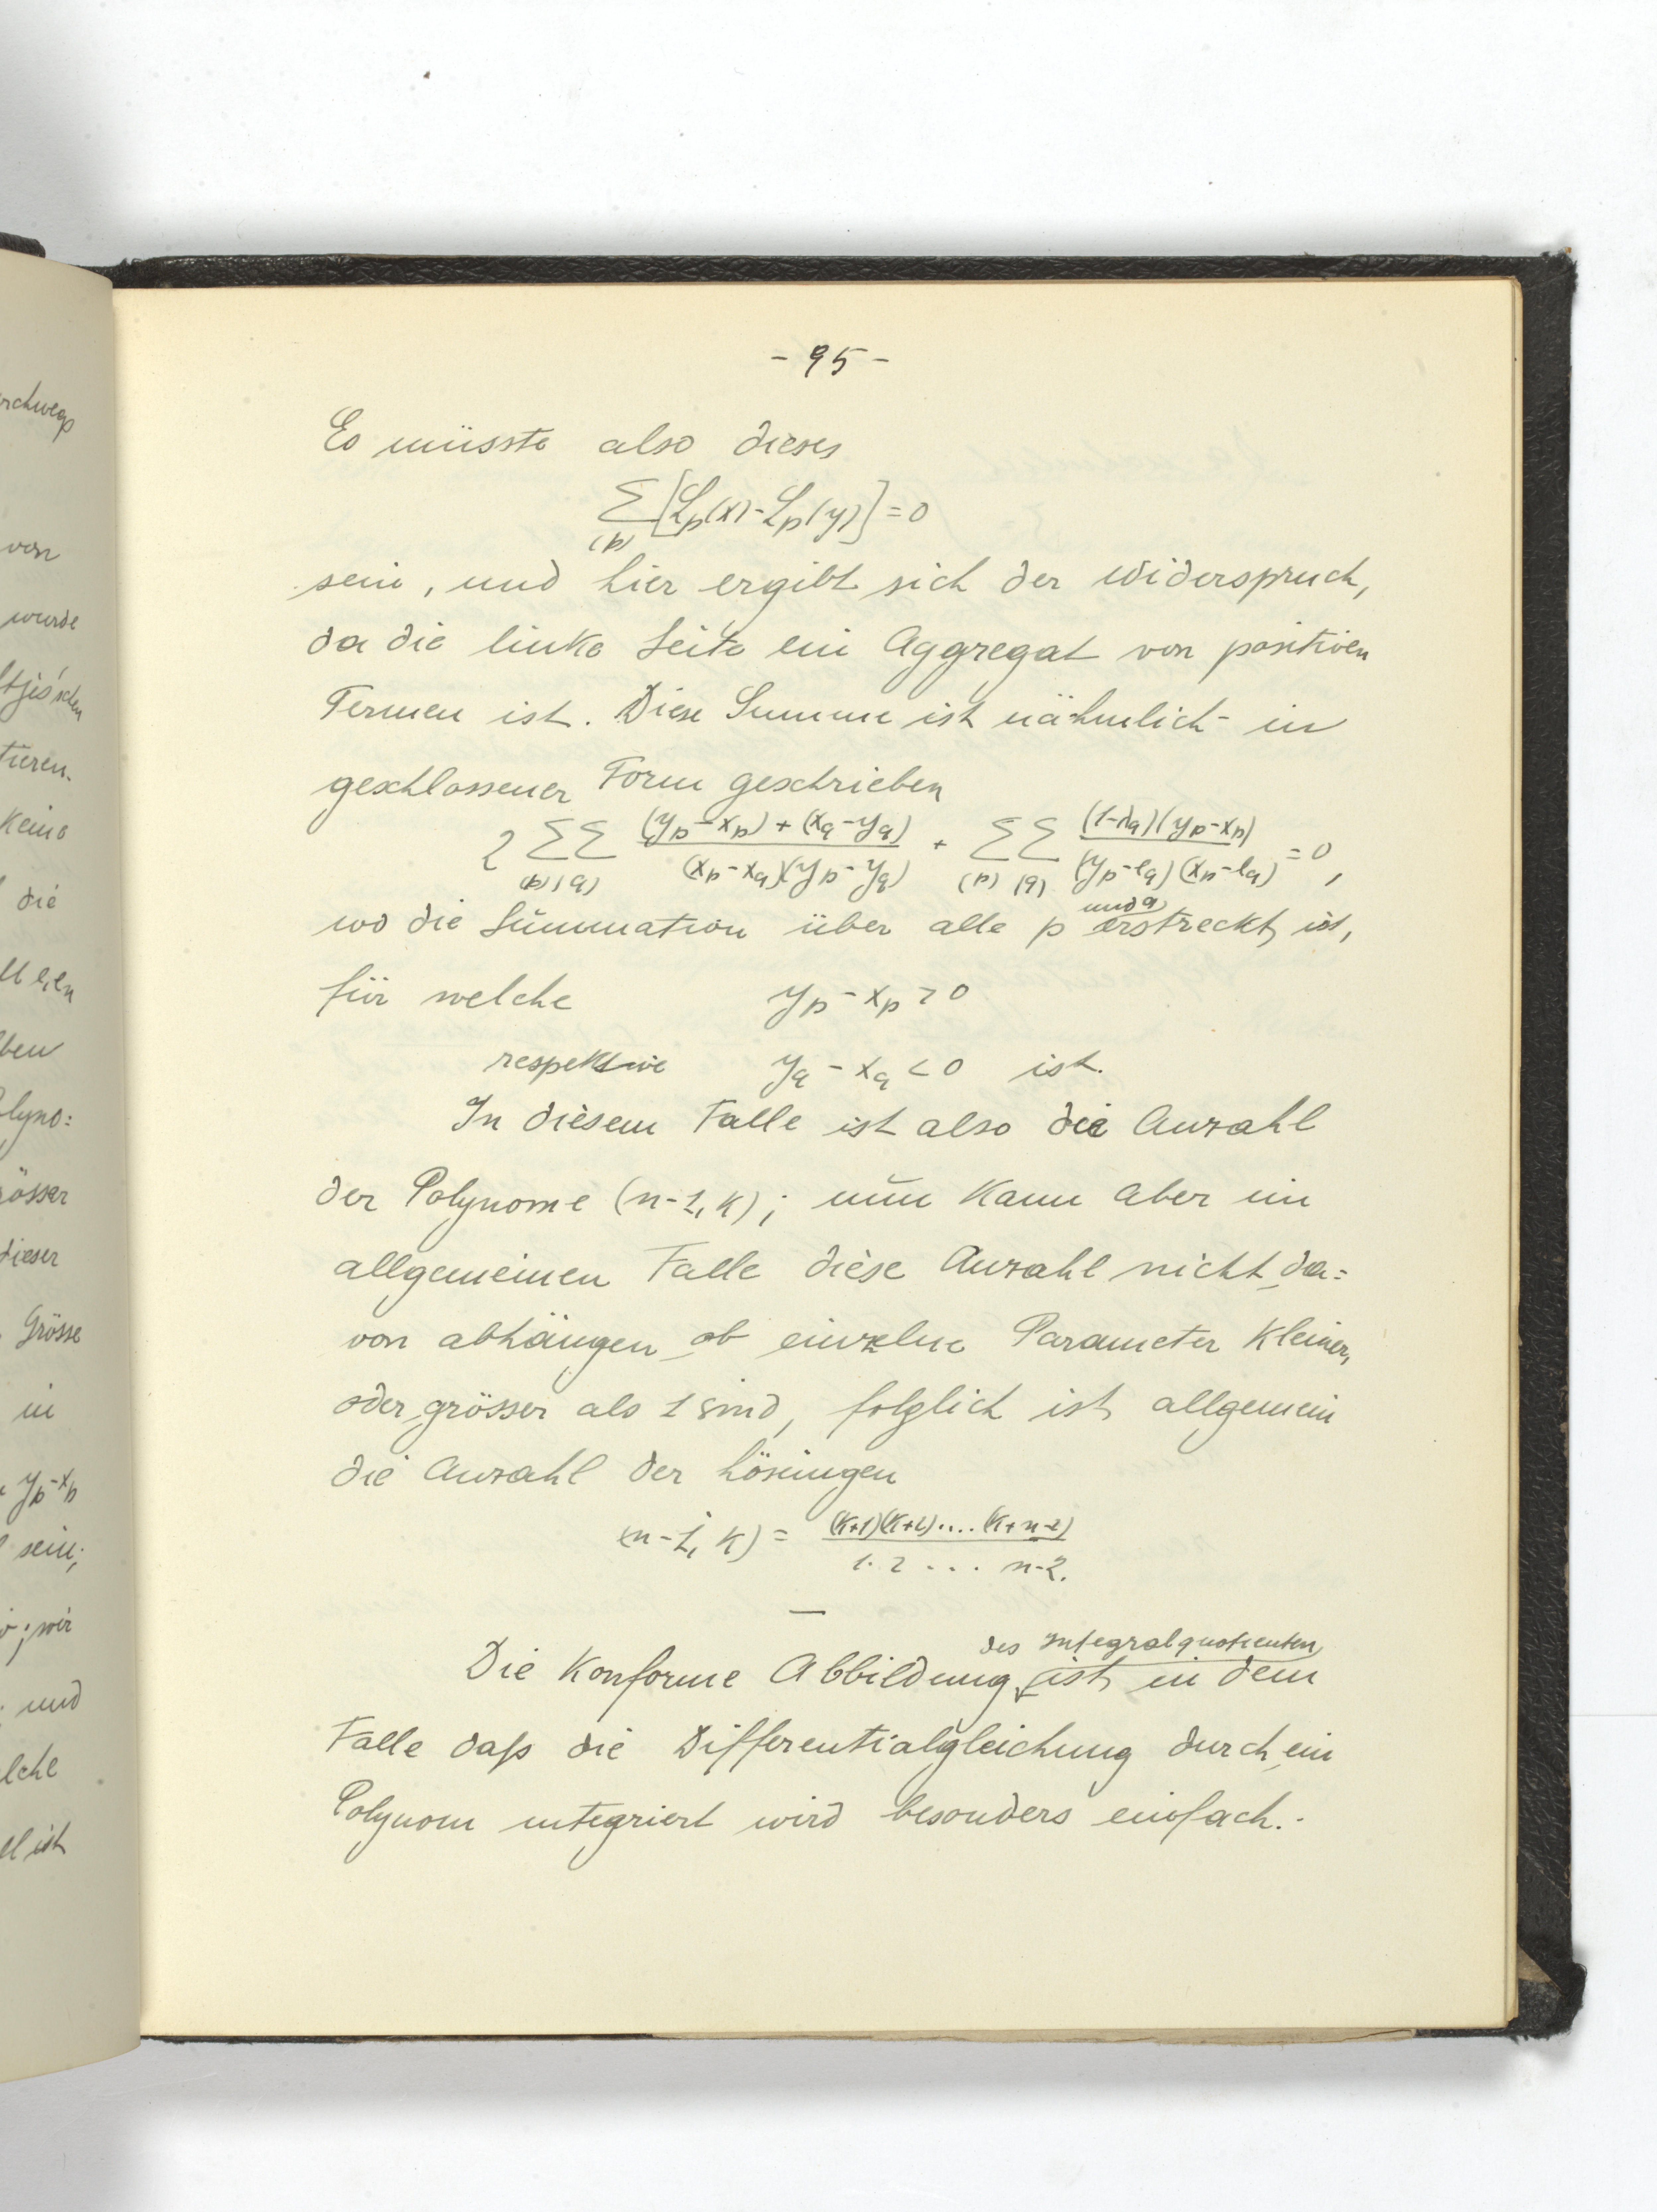 - 95 -
Es müsste also dieses
∑(p) [ℒp(x) - ℒp(y)] = 0
sein, und hier ergibt sich der Widerspruch,
da die linke Seite ein Aggregat von positiven
Termen ist. Diese Summe ist nähmlich - in
geschlossener Form geschrieben
2 ∑(p) ∑(q) ((yp - xp) + (xq - yq)) / ((xp - xq)(yp - yq)) + ∑(p) ∑(q) ((1-λq)(yp - xp)) / ((yp - eq)(xp - eq)) = 0,
wo die Summation über alle p und q erstreckt ist,
für welche yp - xp > 0
respektive yq - xq < 0 ist.
In diesem Falle ist also die Anzahl
der Polynome (n-1, k); nun kann aber im
allgemeinen Falle diese Anzahl nicht da=
von abhängen ob einzelne Parameter kleiner,
oder grösser als 1 sind, folglich ist allgemein
die Anzahl der Lösungen
(n-1, k) = ((k+1)(k+2)....(k+n-2)) / (1. 2 ... n-2.)
Die konforme Abbildung des Integralquotienten ist in dem
Falle daß die Differentialgleichung durch ein
Polynom integriert wird besonders einfach. -
wurde
die
dieser
Grösse
in
yp - xp
sein;
; wir
; und